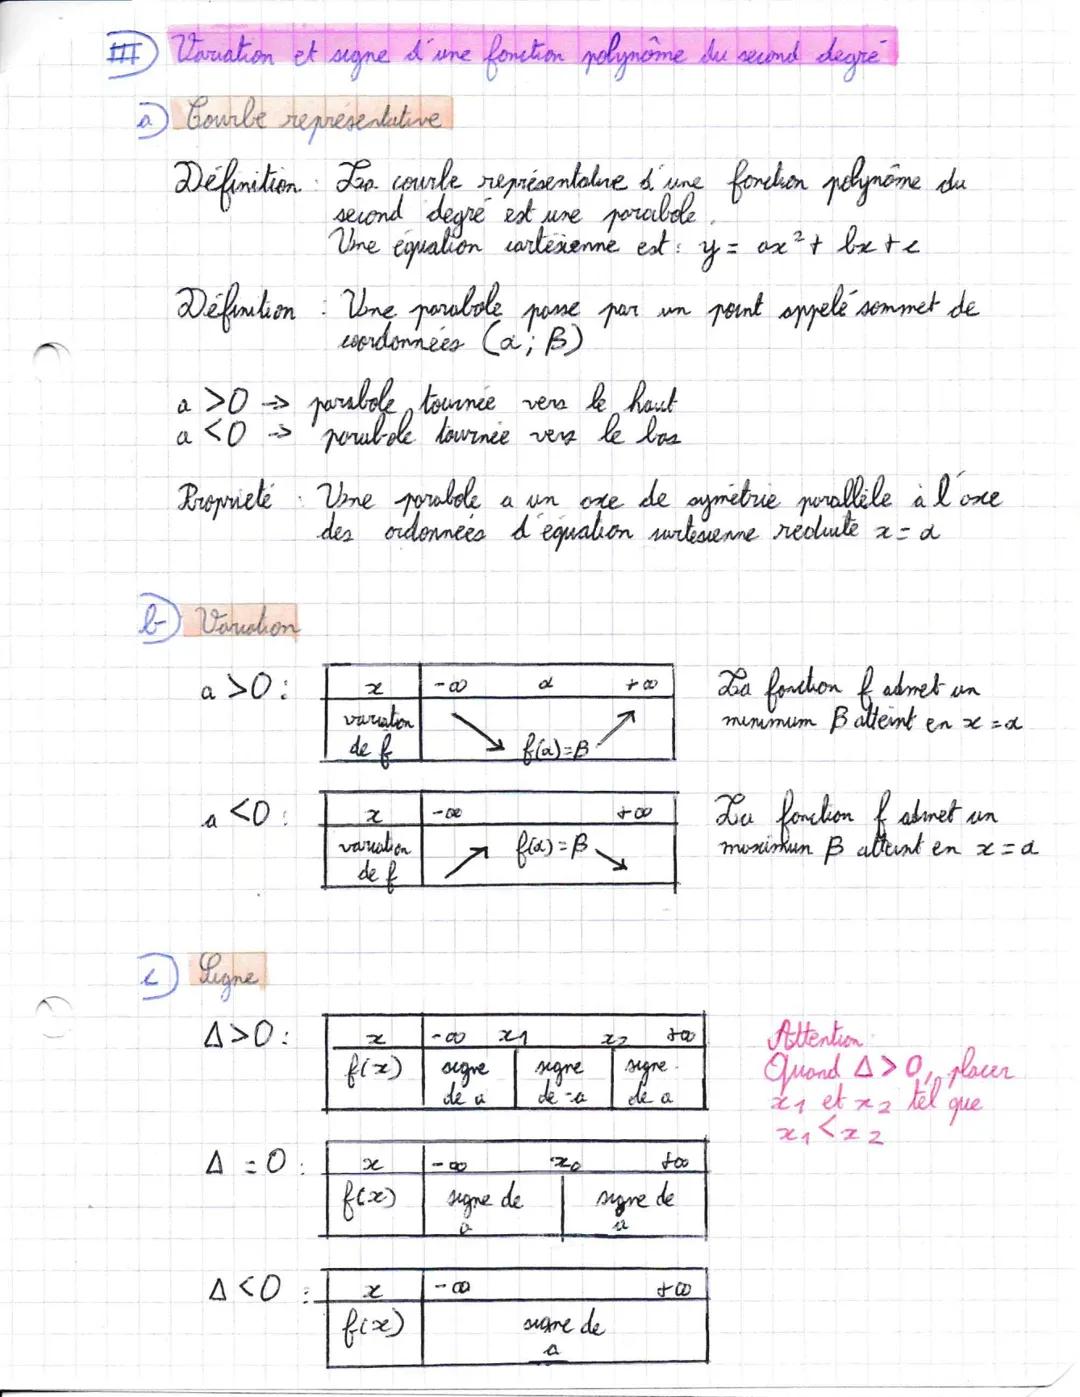 III) Variation et signe d'une fonction polynôme du second degré
a) Courbe représentative
Définition : La courbe représentative d'une fonction polynôme du
second degré est une parabole.
Une équation cartésienne est : y = ax² + bx + c
Définition : Une parabole passe par un point appelé sommet de
coordonnées (α ; β)
a > 0 -> parabole tournée vers le haut
a < 0 -> parabole tournée vers le bas
Propriété : Une parabole a un axe de symétrie parallèle à l'axe
des ordonnées d'équation cartésienne réduite x = α
b) Variation
a > 0 : x -∞ α +∞ La fonction f admet un
variation minimum β atteint en x = α
de f f(α) = β
a < 0 : x -∞ +∞ La fonction f admet un
variation f(α) = β maximum β atteint en x = α
de f
c) Signe
Δ > 0 : x -∞ x1 x2 +∞ Attention :
f(x) signe signe signe Quand Δ > 0, placer
de a de -a de a x1 et x2 tel que
x1 < x2
Δ = 0 : x -∞ x0 +∞
f(x) signe de signe de
a a
Δ < 0 : x -∞ +∞
f(x) signe de
a